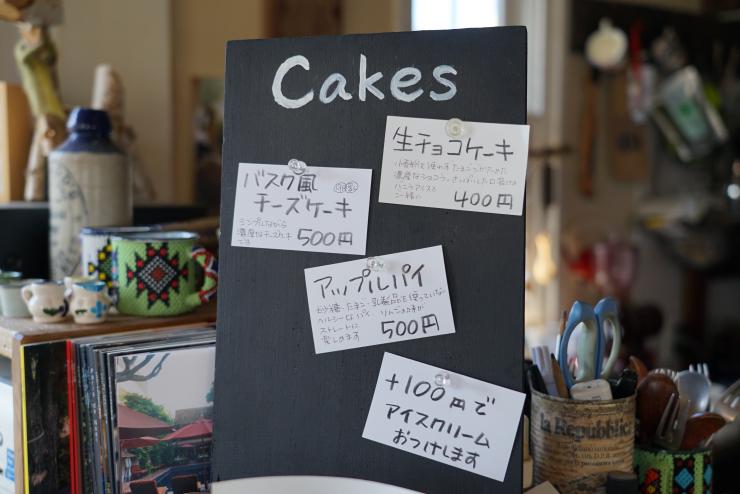 Cakes
生チョコケーキ
小麦粉を使わずたまごでかためた
濃厚なショコラ。さっぱりした口溶けの
バニラアイスと
ご一緒に
400円
バスク風
チーズケーキ
シンプルながら
濃厚なチーズケーキ
です
500円
アップルパイ
砂糖・たまご・乳製品を使っていない
ヘルシーなパイ。リンゴの味が
ストレートに
楽しめます
500円
+100円で
アイスクリーム
おつけします
la Repubblica